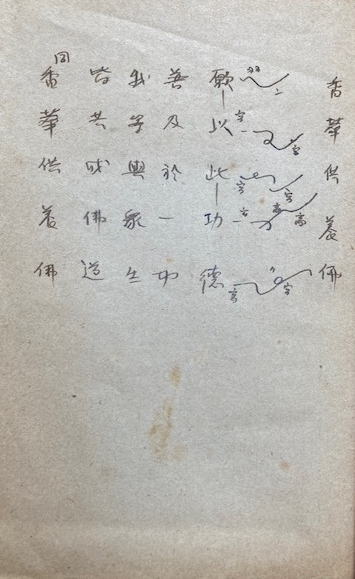 香華供養佛
願以此功德
普及於一切
我等與眾生
皆共成佛道
同
香華供養佛